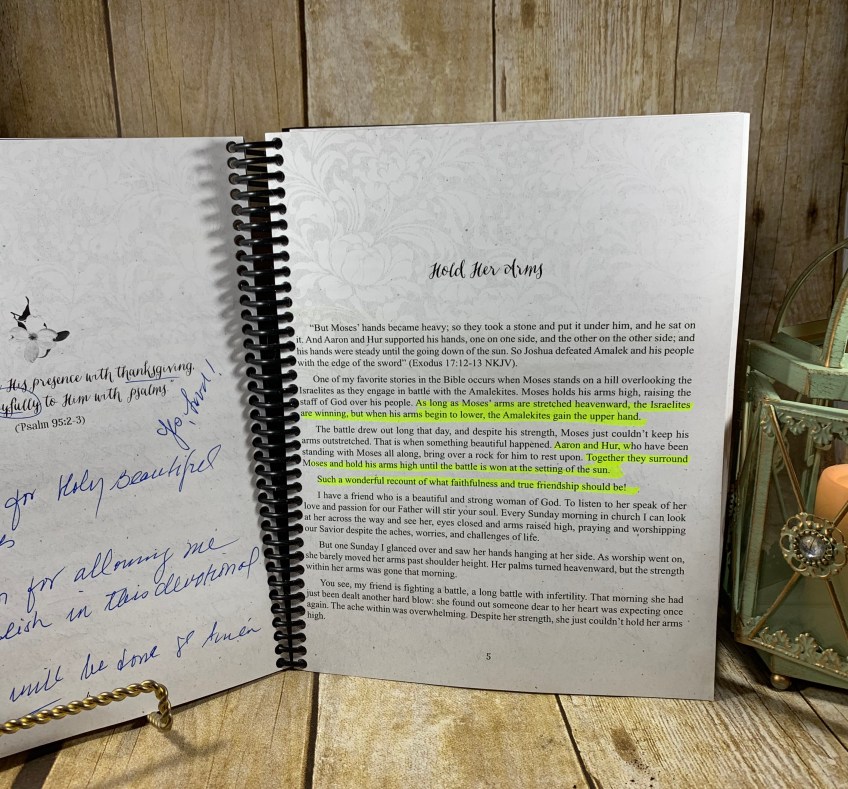 His presence with thanksgiving.
to Him with psalms
(Psalm 95:2-3)
for Holy Beautiful
for allowing me
in this devotional
will be done
Hold Her Arms
“But Moses’ hands became heavy; so they took a stone and put it under him, and he sat on
it. And Aaron and Hur supported his hands, one on one side, and the other on the other side; and
his hands were steady until the going down of the sun. So Joshua defeated Amalek and his people
with the edge of the sword” (Exodus 17:12-13 NKJV).
One of my favorite stories in the Bible occurs when Moses stands on a hill overlooking the
Israelites as they engage in battle with the Amalekites. Moses holds his arms high, raising the
staff of God over his people. As long as Moses’ arms are stretched heavenward, the Israelites
are winning, but when his arms begin to lower, the Amalekites gain the upper hand.
The battle drew out long that day, and despite his strength, Moses just couldn’t keep his
arms outstretched. That is when something beautiful happened. Aaron and Hur, who have been
standing with Moses all along, bring over a rock for him to rest upon. Together they surround
Moses and hold his arms high until the battle is won at the setting of the sun.
Such a wonderful recount of what faithfulness and true friendship should be!
I have a friend who is a beautiful and strong woman of God. To listen to her speak of her
love and passion for our Father will stir your soul. Every Sunday morning in church I can look
at her across the way and see her, eyes closed and arms raised high, praying and worshipping
our Savior despite the aches, worries, and challenges of life.
But one Sunday I glanced over and saw her hands hanging at her side. As worship went on,
she barely moved her arms past shoulder height. Her palms turned heavenward, but the strength
within her arms was gone that morning.
You see, my friend is fighting a battle, a long battle with infertility. That morning she had
just been dealt another hard blow: she found out someone dear to her heart was expecting once
again. The ache within was overwhelming. Despite her strength, she just couldn’t hold her arms
high.
5